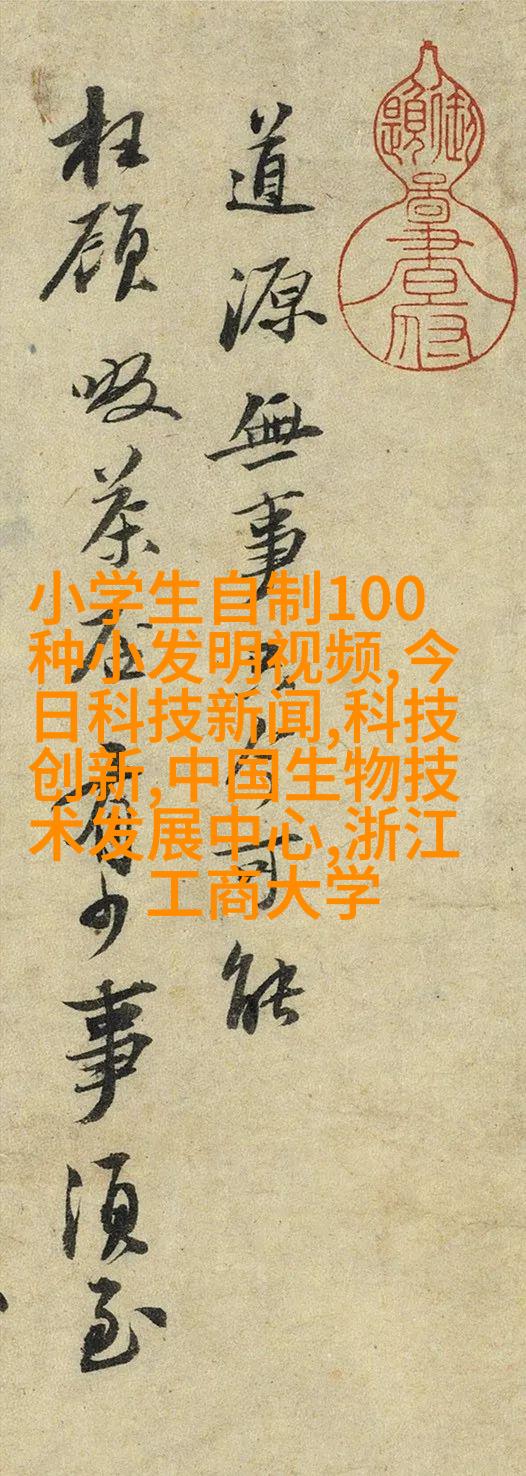 道源無事只今可能
枉顧啜茶否有少事須至
小学生自制100
种小发明视频,今
日科技新闻,科技
创新,中国生物技
术发展中心,浙江
工商大学